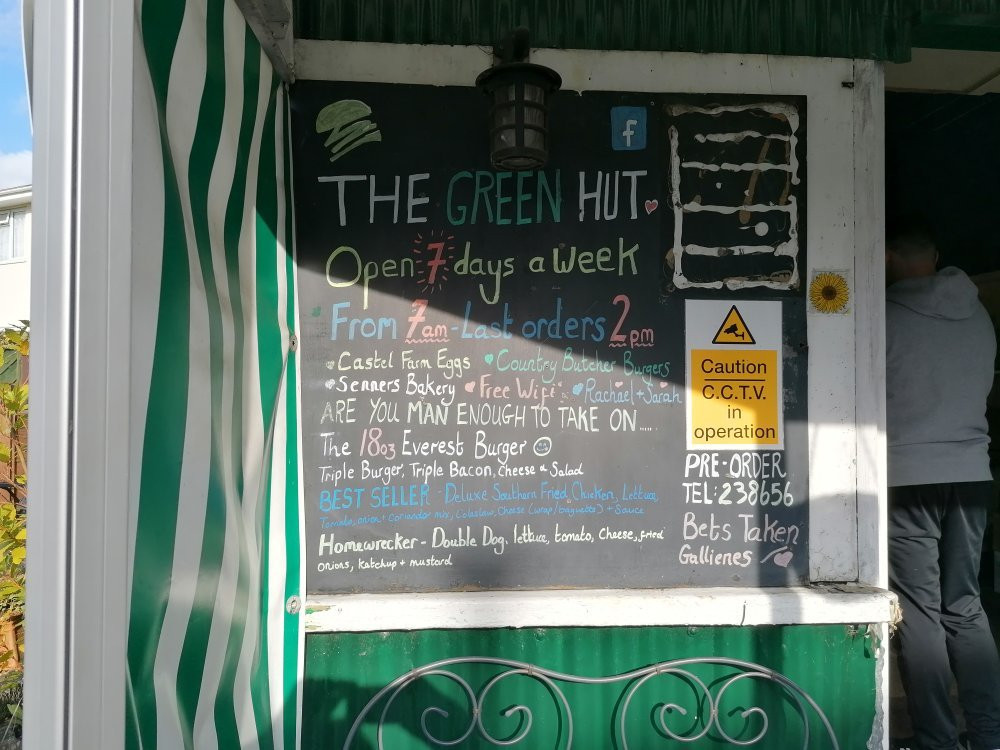 f
THE GREEN HUT
Open 7 days a week
From 7am - Last orders 2pm
Castel Farm Eggs Country Butcher Burgers
Senners Bakery Free Wifi Rachael + Sarah
ARE YOU MAN ENOUGH TO TAKE ON.....
The 18oz Everest Burger
Triple Burger, Triple Bacon, Cheese & Salad
BEST SELLER - Deluxe Southern Fried Chicken, Lettuce,
Tomato, onion + Coriander mix, Colslaw, Cheese (wrap/baguette) + Sauce
Homewrecker - Double Dog, lettuce, tomato, Cheese, fried
onions, ketchup + mustard
Caution
C.C.T.V.
in
operation
PRE-ORDER
TEL: 238656
Bets Taken
Gallienes